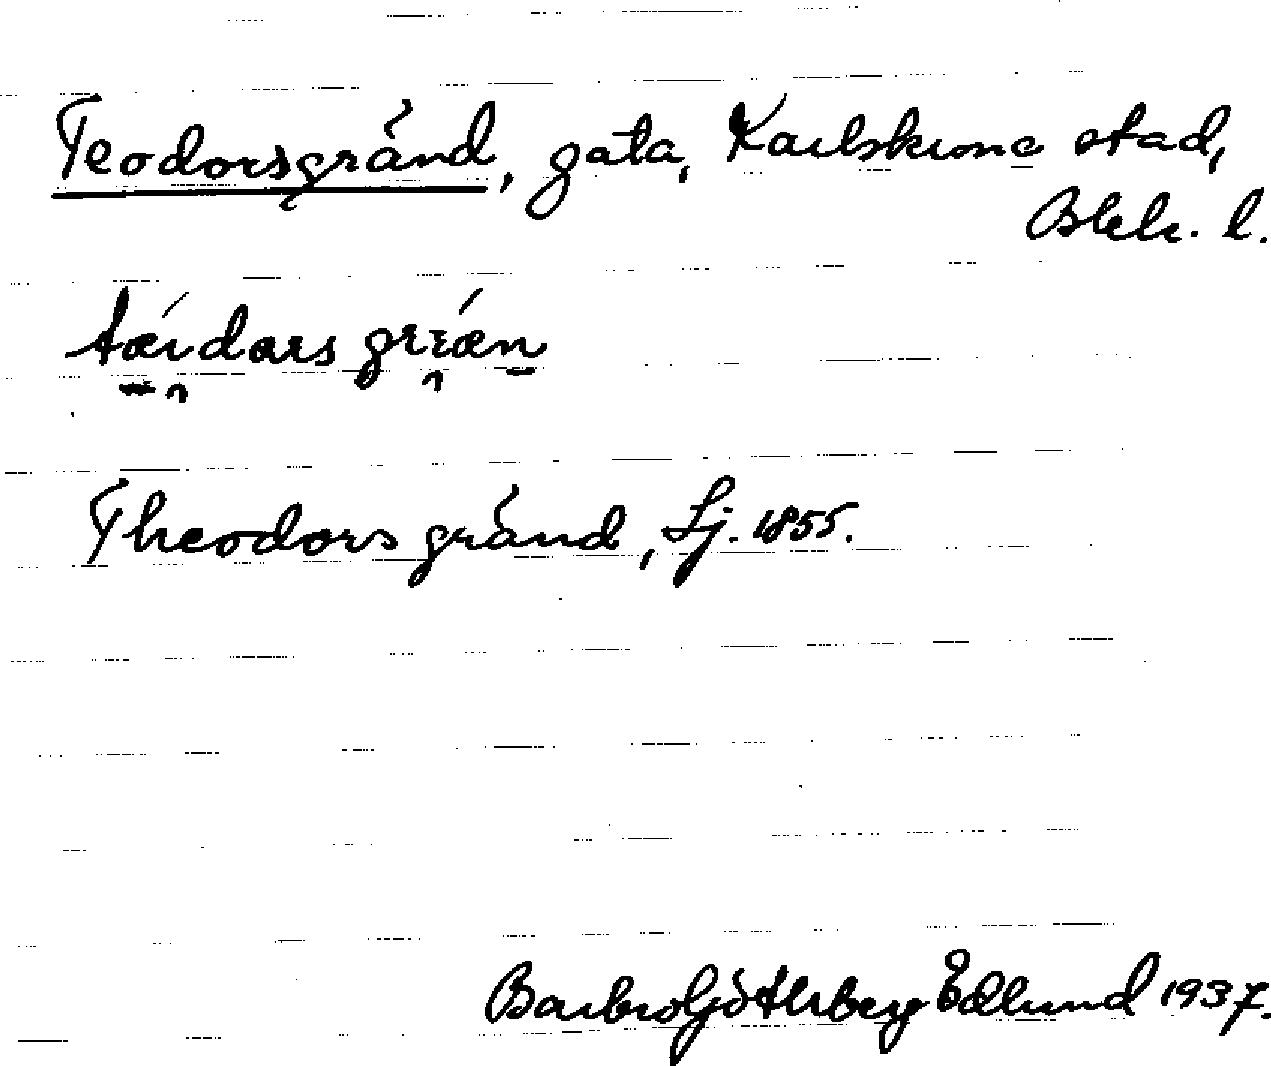 Teodorsgränd, gata, Karlskrona stad,
Blek. l.
Theodors gränd, Lj. 1855.
Barbro Götherberg Edlund 1937.